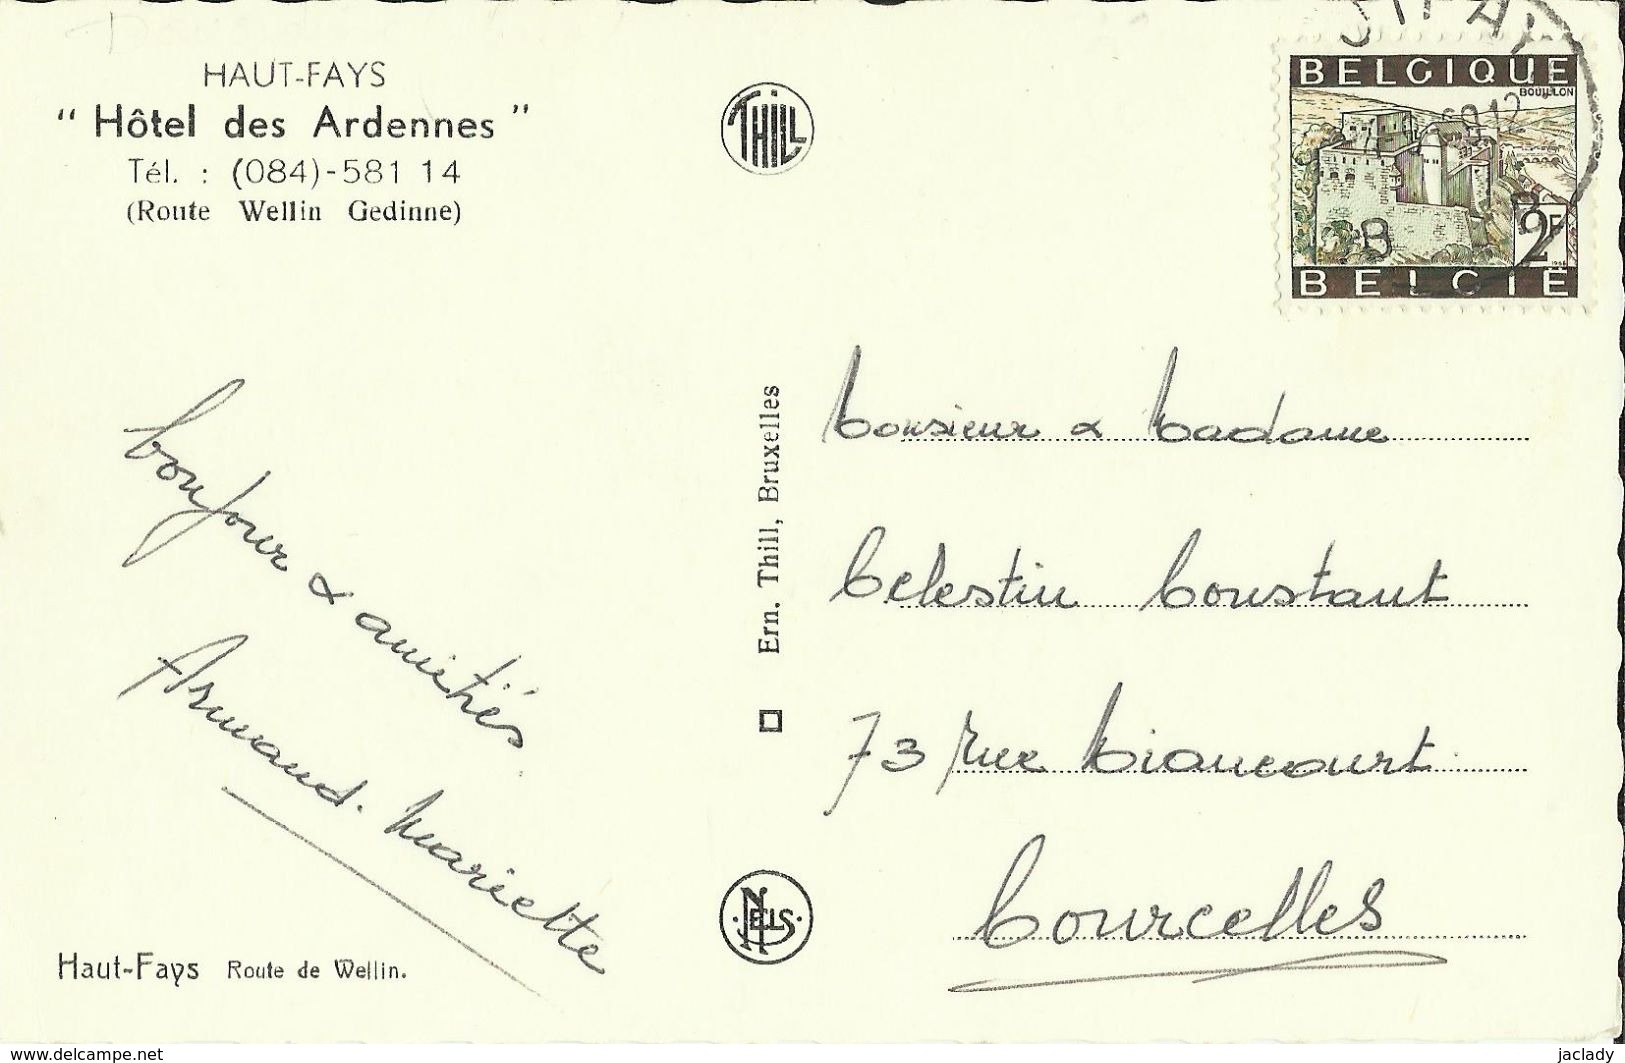 HAUT-FAYS
" Hôtel des Ardennes "
Tél. : (084)-581 14
(Route Wellin Gedinne)
THILL
BELGIQUE
BOUILLON
2F
BELGIË
bonjour & amitiés
Armand. Mariette
Ern. Thill, Bruxelles
NELS
Monsieur & Madame
Celestin Constant
73 rue
Courcelles
Haut-Fays Route de Wellin.
www.delcampe.net
jaclady